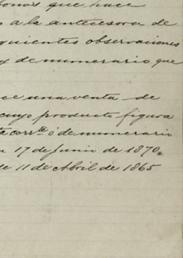 bonos que hace
o a la antecesora de
siguientes observaciones
y de numerario que
ce una venta de
cuyo producto figura
ta corr.te ó de numerario
n 17 de Junio de 1870.
de 11 de Abril de 1865